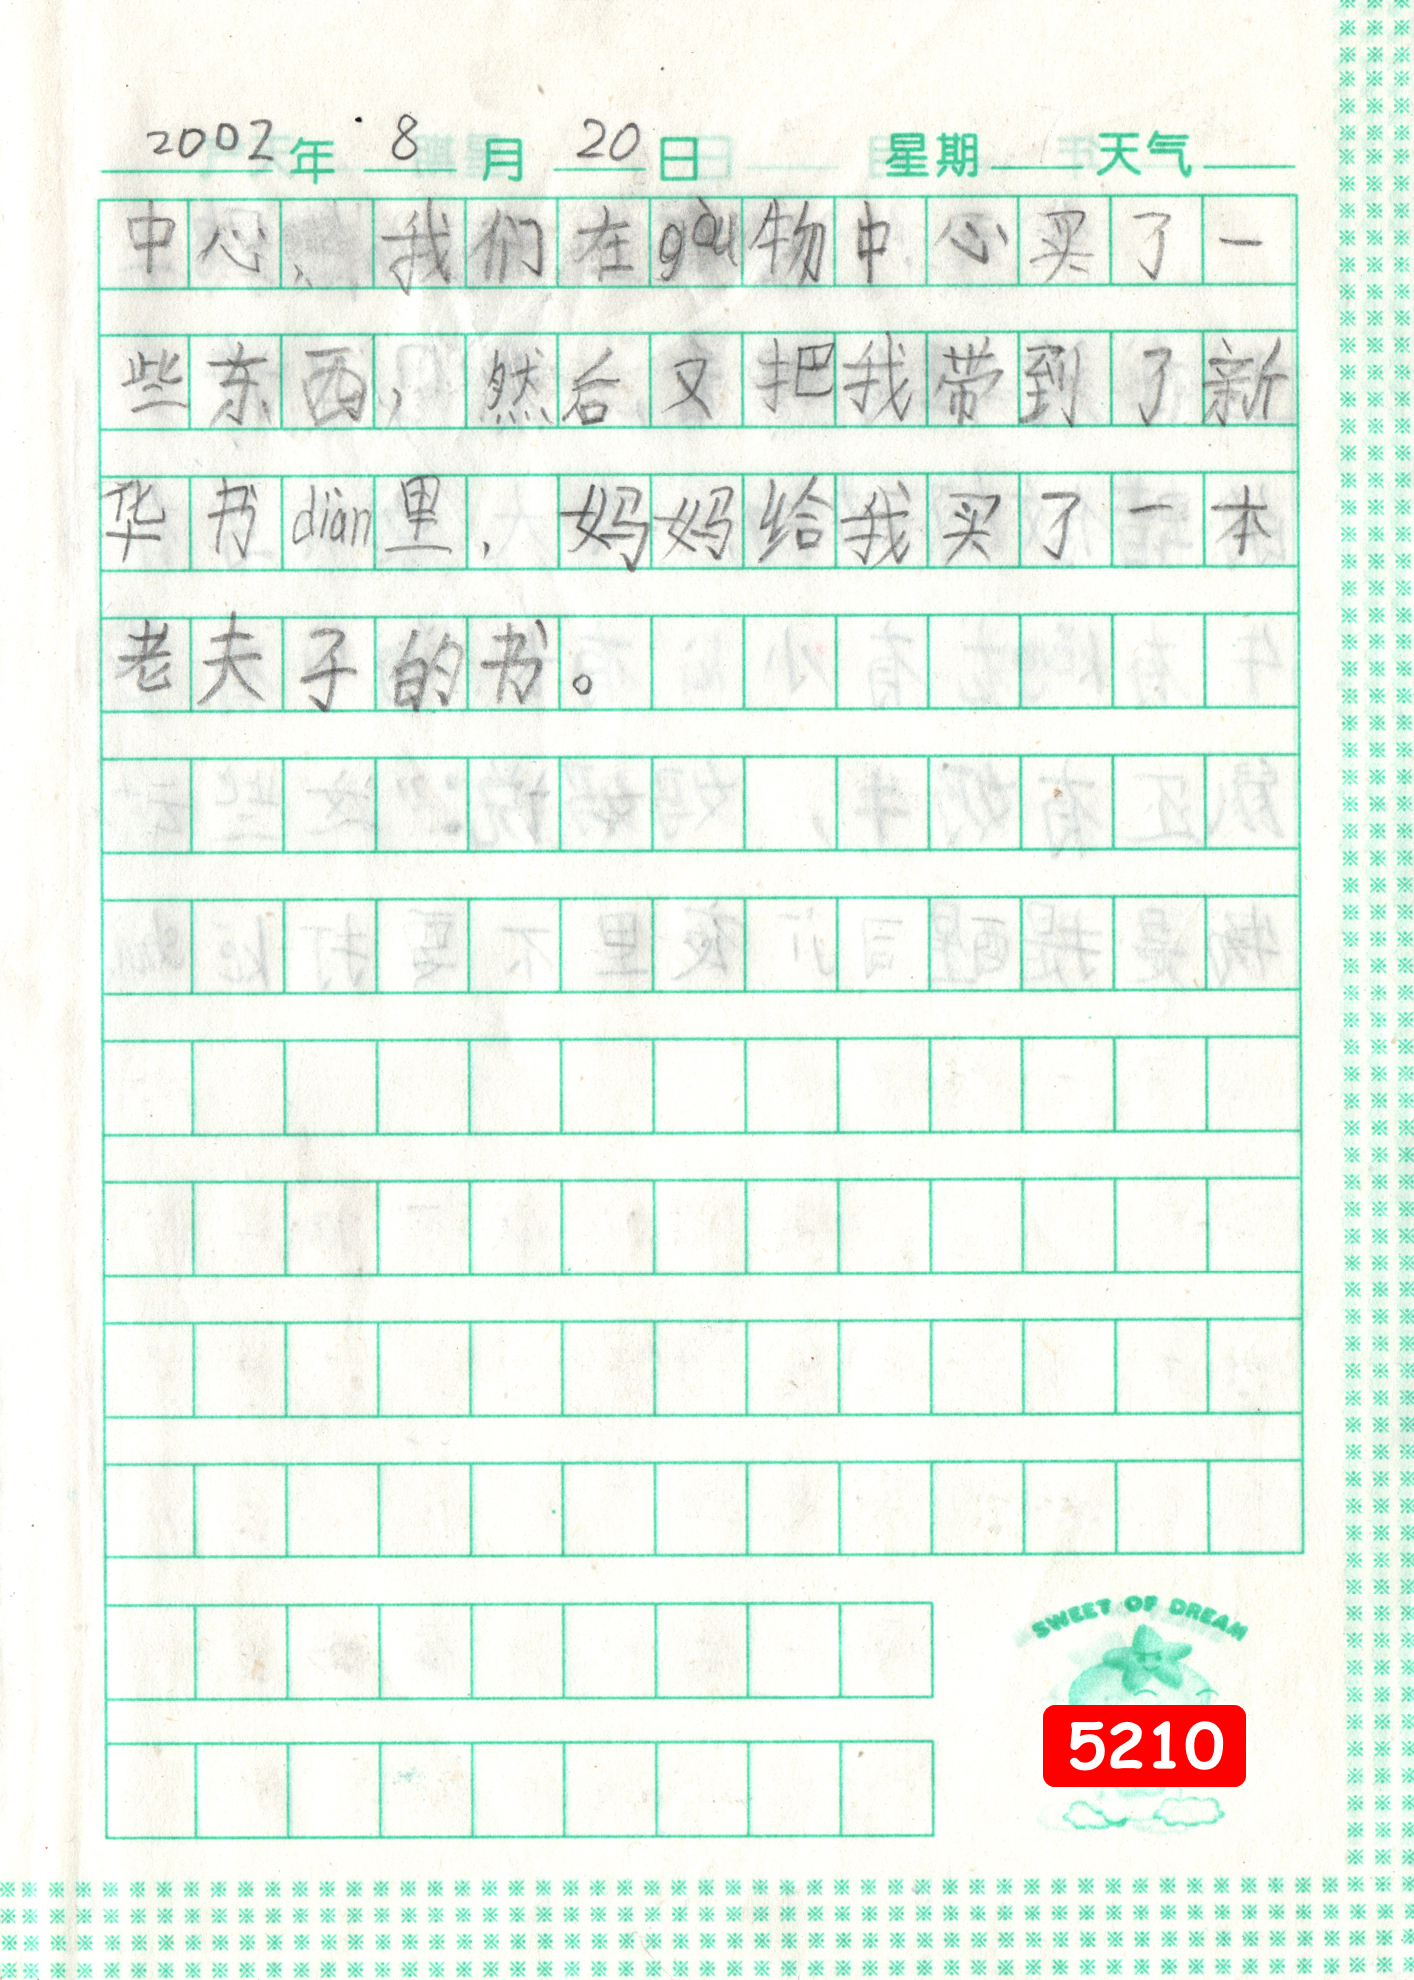 2002年 8月 20日 星期 天气
中心、我们在gòu物中心买了一
些东西，然后又把我带到了新
华书diàn里，妈妈给我买了一本
老夫子的书。
SWEET OF DREAM
5210